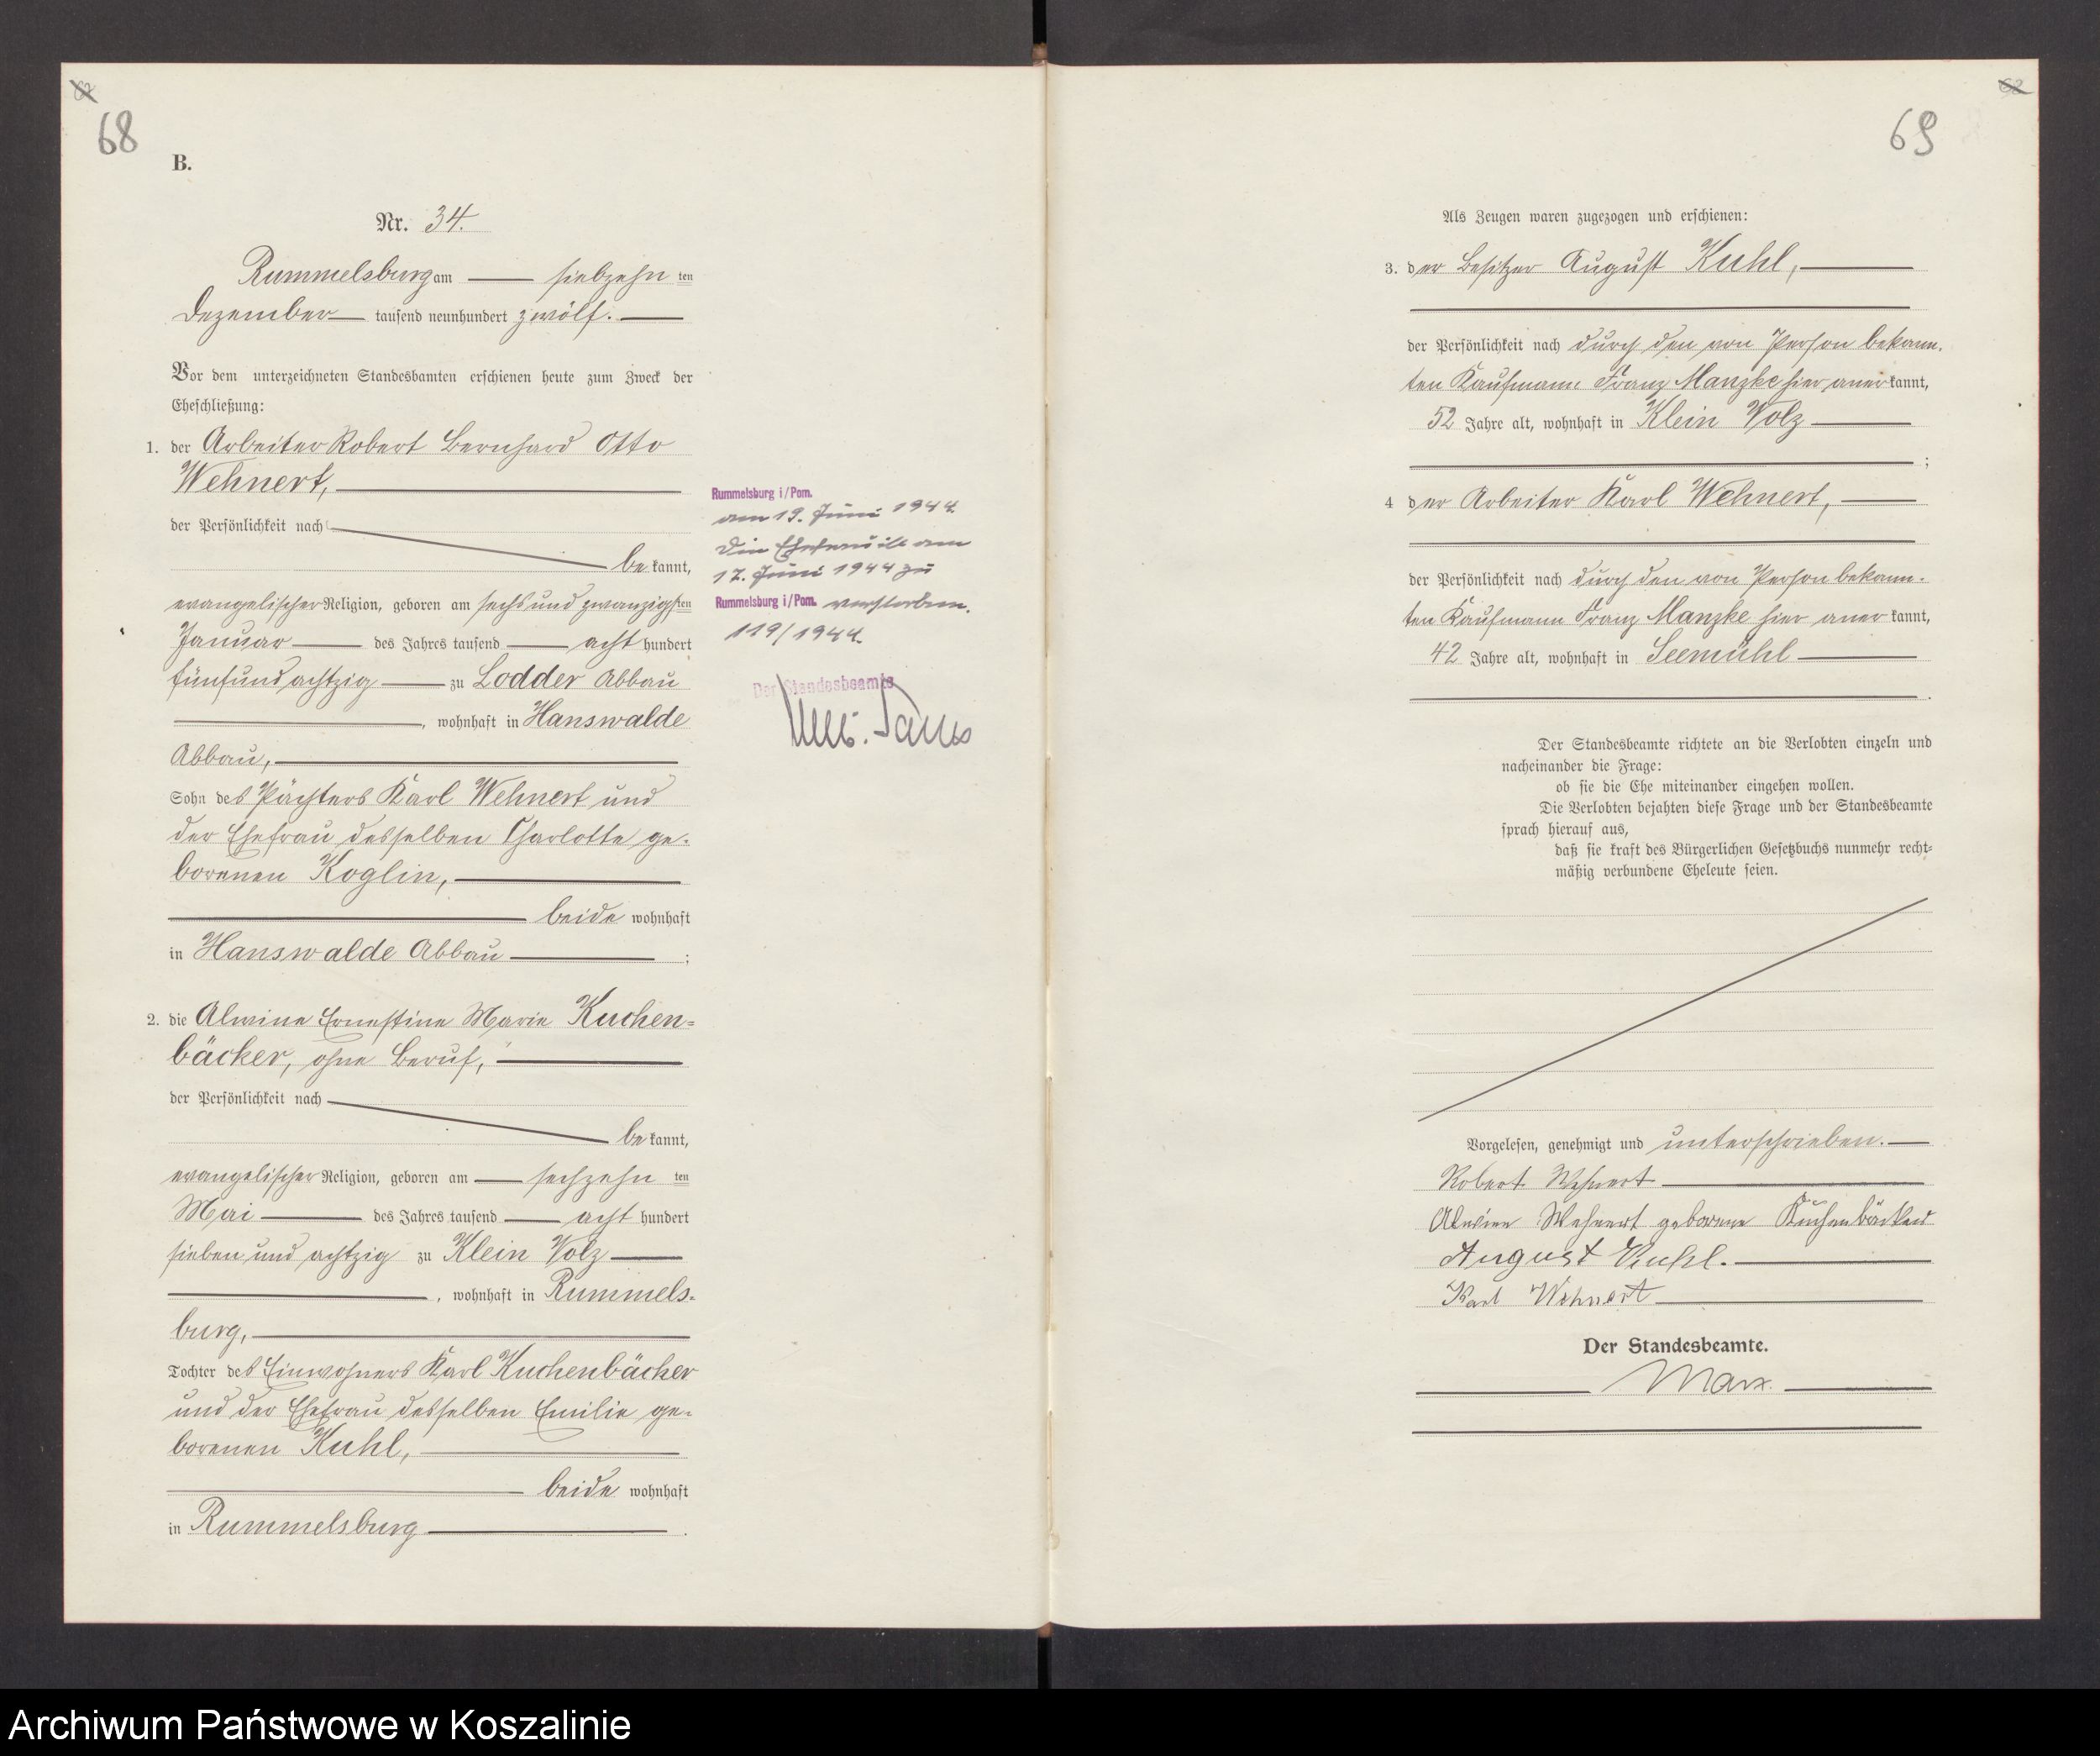 68
B.
Nr. 34.
Rummelsburg am siebzehn ten
Dezember tausend neunhundert zwölf.
Vor dem unterzeichneten Standesbamten erschienen heute zum Zweck der
Eheschließung:
1. der Arbeiter Robert Bernhard Otto
Wehnert,
der Persönlichkeit nach
be kannt,
evangelischer Religion, geboren am sechsundzwanzigsten
Januar des Jahres tausend acht hundert
fünfundachtzig zu Lodder Abbau
, wohnhaft in Hanswalde
Abbau,
Sohn des Pächters Karl Wehnert und
der Ehefrau desselben Charlotte ge-
borenen Koglin,
beide wohnhaft
in Hanswalde Abbau ;
2. die Alwine Ernestine Marie Kuchen=
bäcker, ohne Beruf,
der Persönlichkeit nach
be kannt,
evangelischer Religion, geboren am sechzehn ten
Mai des Jahres tausend acht hundert
sieben und achtzig zu Klein Volz
, wohnhaft in Rummels-
burg,
Tochter des Einwohners Karl Kuchenbäcker
und der Ehefrau desselben Emilie ge-
borenen Kuhl,
beide wohnhaft
in Rummelsburg .
Rummelsburg i/Pom.
am 19. Juni 1944
Die Ehefrau ist am
17. Juni 1944 zu
Rummelsburg i/Pom. verstorben.
119/1944.
Der Standesbeamte
69
Als Zeugen waren zugezogen und erschienen:
3. der Besitzer August Kuhl,
der Persönlichkeit nach durch den von Person bekann-
ten Kaufmann Franz Manzke hier anerkannt,
52 Jahre alt, wohnhaft in Klein Volz
;
4 der Arbeiter Karl Wehnert,
der Persönlichkeit nach durch den von Person bekann-
ten Kaufmann Franz Manzke hier anerkannt,
42 Jahre alt, wohnhaft in Seemühl
.
Der Standesbeamte richtete an die Verlobten einzeln und
nacheinander die Frage:
ob sie die Ehe miteinander eingehen wollen.
Die Verlobten bejahten diese Frage und der Standesbeamte
sprach hierauf aus,
daß sie kraft des Bürgerlichen Gesetzbuchs nunmehr recht=
mäßig verbundene Eheleute seien.
Vorgelesen, genehmigt und unterschrieben.
Robert Wehnert
Alwine Wehnert geborene Kuchenbäcker
August Kuhl.
Karl Wehnert
Der Standesbeamte.
Marx.
Archiwum Państwowe w Koszalinie